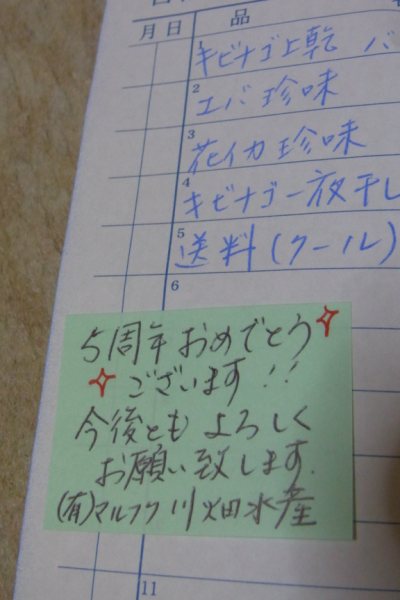 月日 品
1 キビナゴ上乾 バ
2 エバ珍味
3 花イカ珍味
4 キビナゴ一夜干し
5 送料(クール)
6
5周年おめでとう
ございます!!
今後ともよろしく
お願い致します.
(有)マルフク川畑水産
11